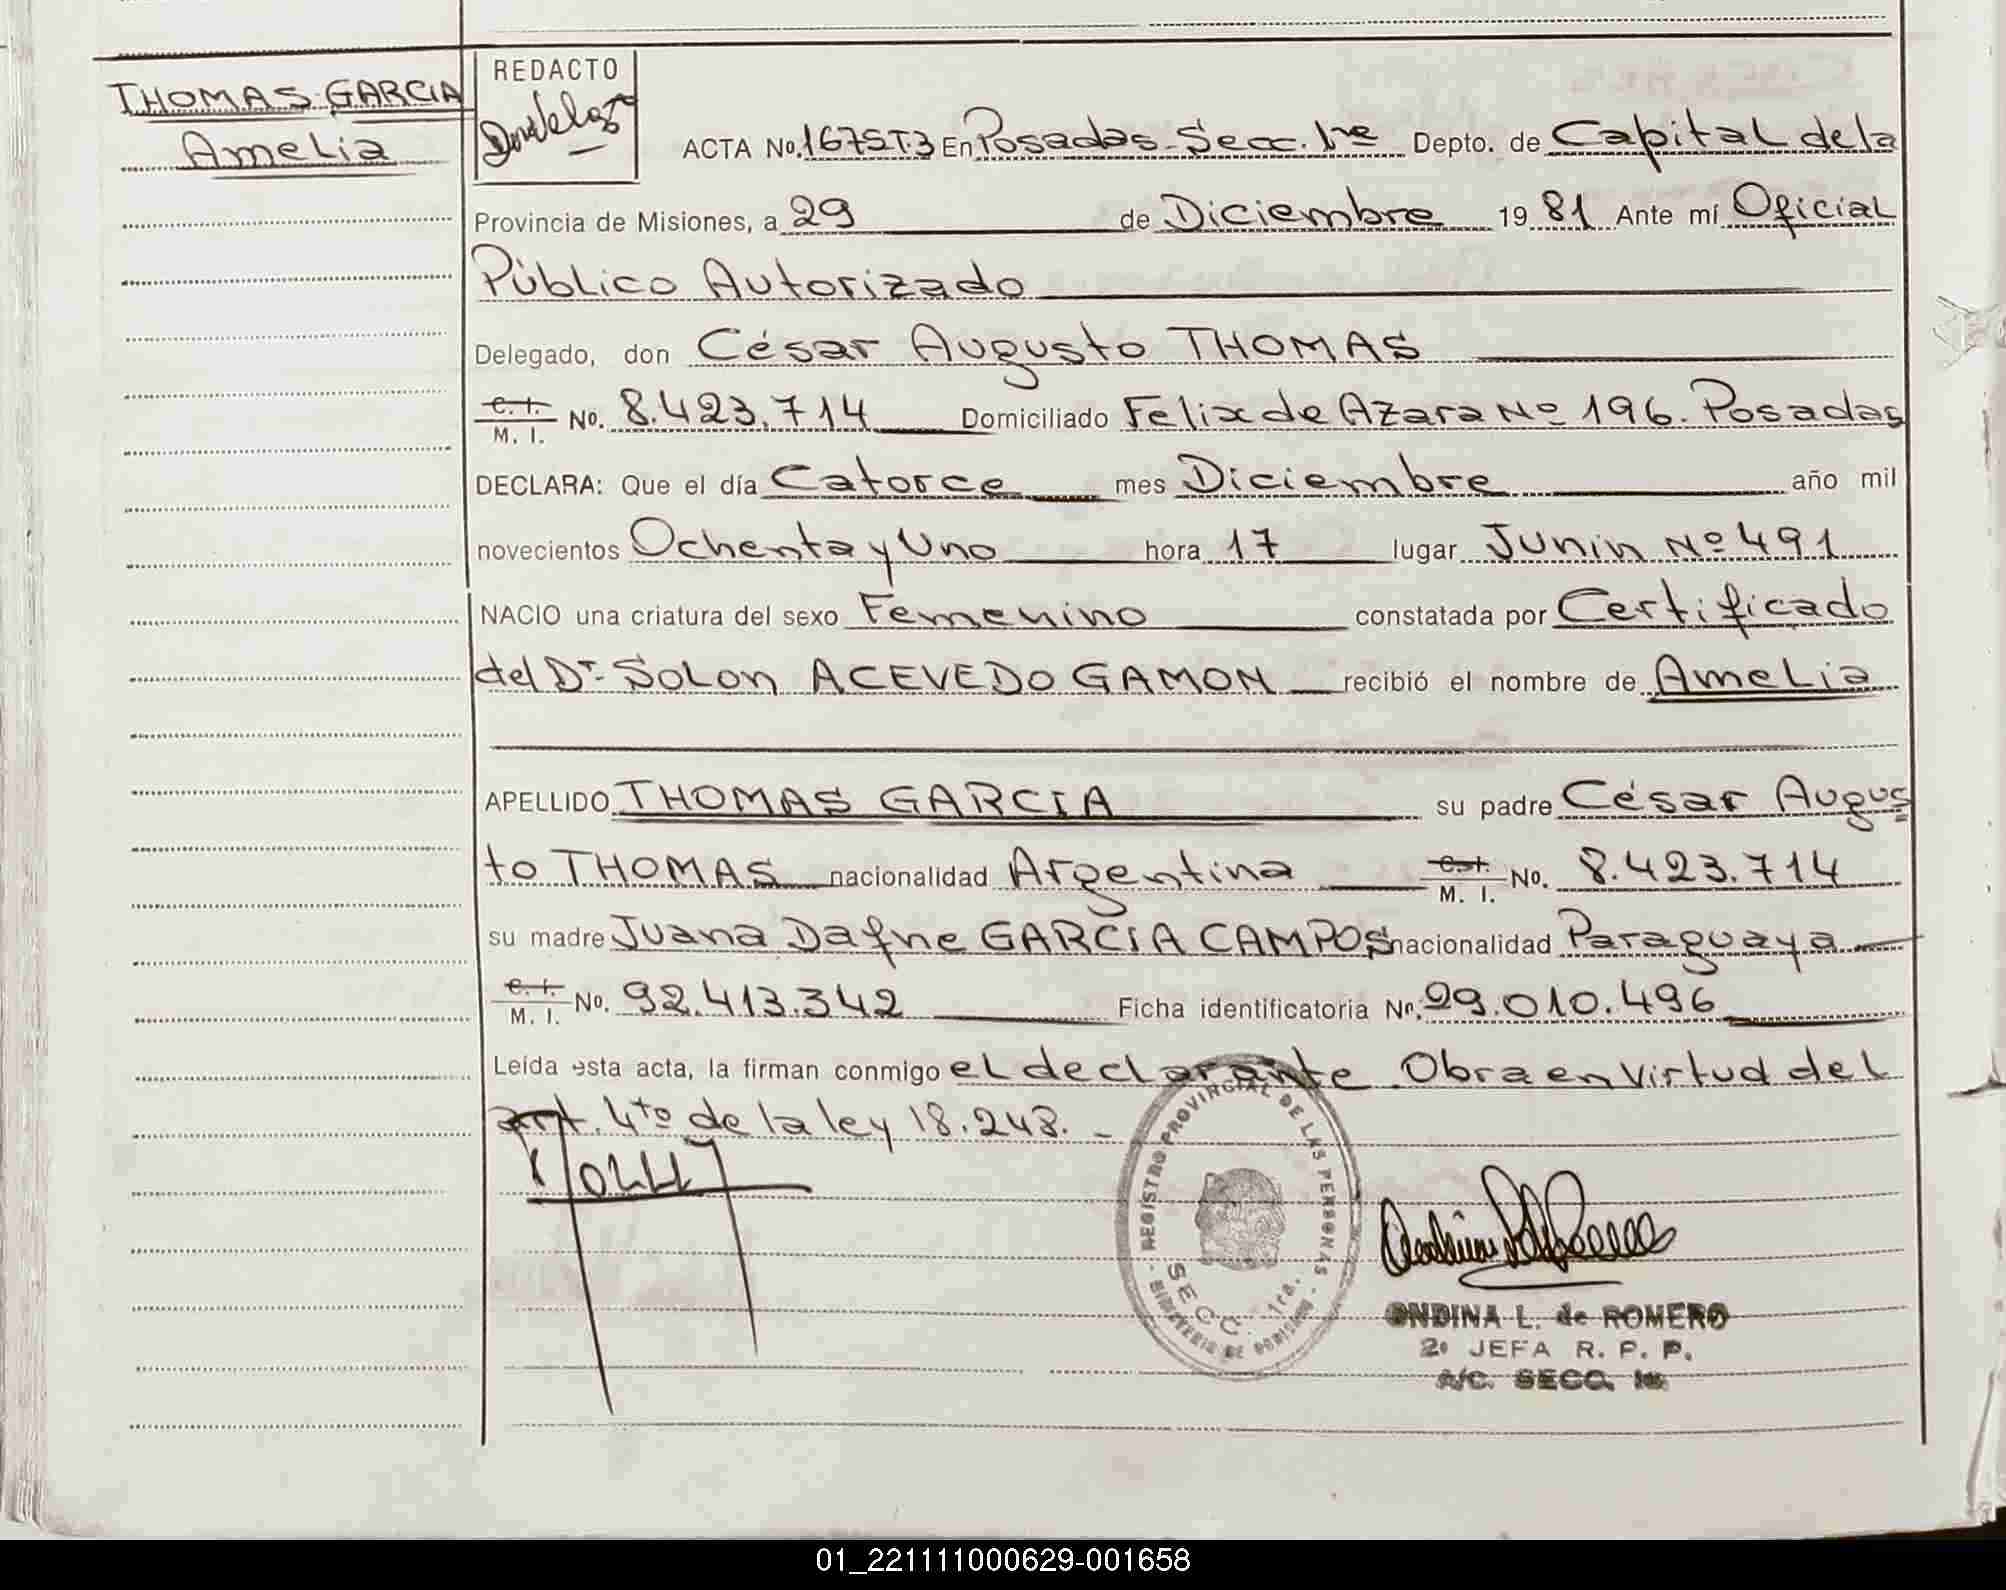 THOMAS GARCIA
Amelia
REDACTO
ACTA No. 1675T.3 En Posadas-Secc. 1ra Depto. de Capital de la
Provincia de Misiones, a 29 de Diciembre 19 81 Ante mí Oficial
Público Autorizado
Delegado, don César Augusto THOMAS
C. I.
M. I. No. 8.423.714 Domiciliado Felix de Azara Nº 196. Posadas
DECLARA: Que el día Catorce mes Diciembre año mil
novecientos Ochenta y Uno hora 17 lugar Junin Nº 491
NACIO una criatura del sexo Femenino constatada por Certificado
del Dr. Solon ACEVEDO GAMON recibió el nombre de Amelia
APELLIDO THOMAS GARCIA su padre César Augus
to THOMAS nacionalidad Argentina C. I. M. I. No. 8.423.714
su madre Juana Dafne GARCIA CAMPOS nacionalidad Paraguaya
C. I.
M. I. No. 92.413.342 Ficha identificatoria No. 29.010.496
Leída esta acta, la firman conmigo el declarante. Obra en virtud del
art. 4to de la ley 18.248. -
REGISTRO PROVINCIAL DE LAS PERSONAS
SECC. 1ra.
MINISTERIO DE GOBIERNO
ONDINA L. de ROMERO
2º JEFA R. P. P.
A/C. SECC. 1ra
01_221111000629-001658